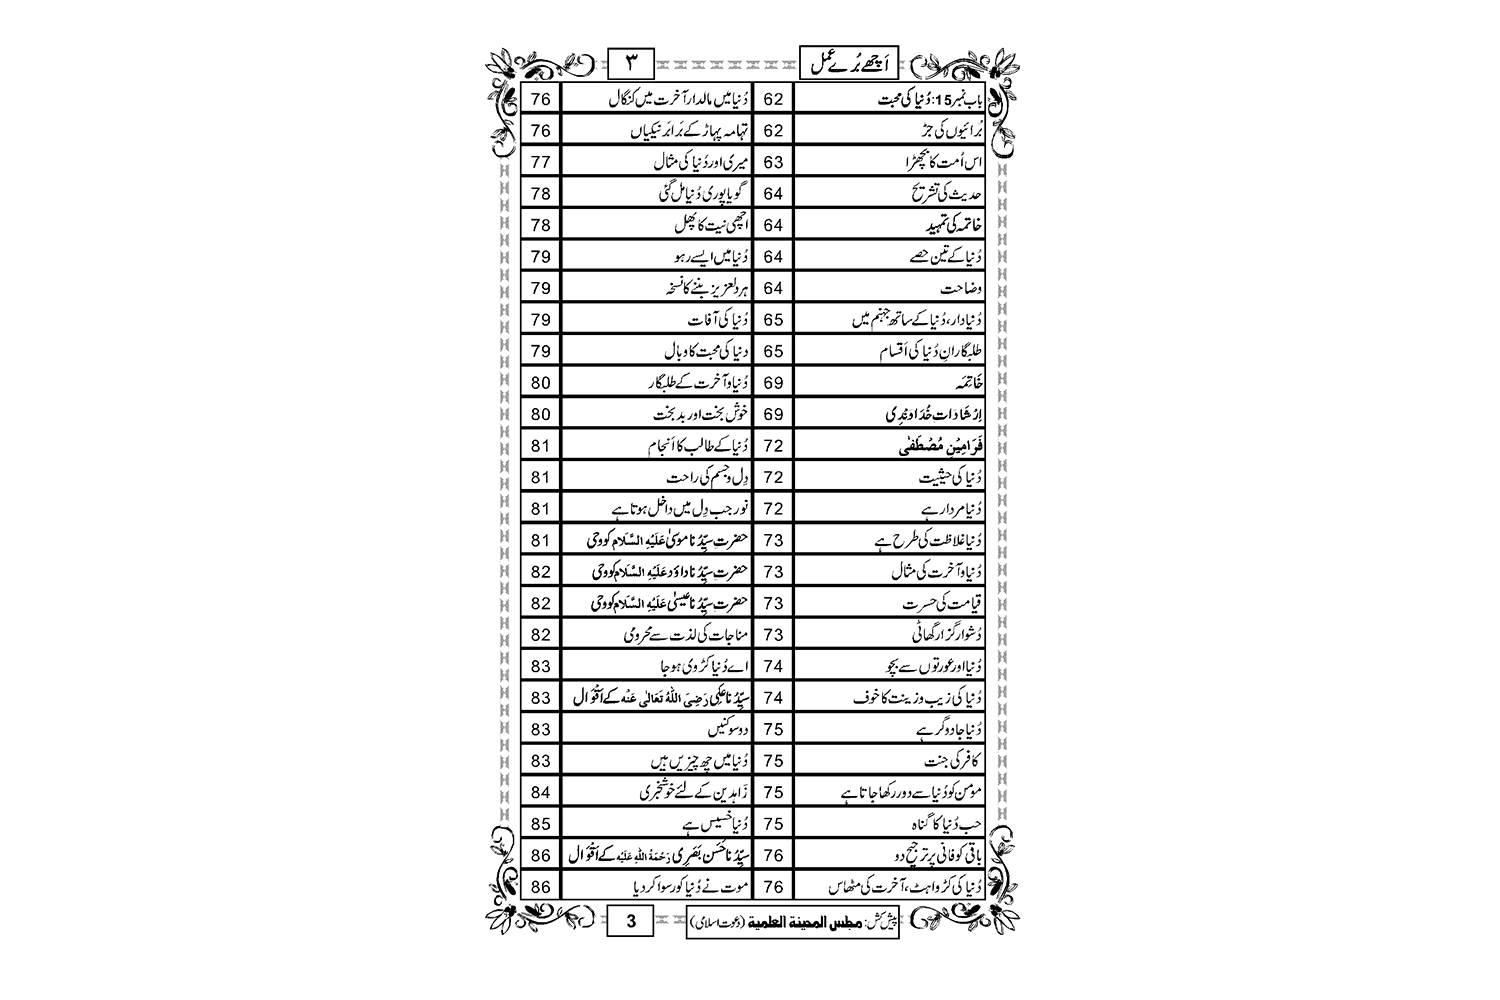 اَچھے بُرے عمل
۳
باب نمبر15: دُنیا کی محبت 62
بُرائیوں کی جڑ 62
اس اُمت کا بچھڑا 63
حدیث کی تشریح 64
خاتمہ کی تمہید 64
دُنیا کے تین حصے 64
وضاحت 64
دُنیادار، دُنیا کے ساتھ جہنم میں 65
طلبگارانِ دُنیا کی اَقسام 65
خَاتِمَہ 69
اِرْشَادَاتِ خُدَاوَنْدِی 69
فَرَامِیْنِ مُصْطَفٰی 72
دُنیا کی حیثیت 72
دُنیا مردار ہے 72
دُنیا غلاظت کی طرح ہے 73
دُنیا و آخرت کی مثال 73
قیامت کی حسرت 73
دُشوار گزار گھاٹی 73
دُنیا اور عورتوں سے بچو 74
دُنیا کی زیب و زینت کا خوف 74
دُنیا جادوگر ہے 75
کافر کی جنت 75
مؤمن کو دُنیا سے دور رکھا جاتا ہے 75
حب دُنیا کا گناہ 75
باقی کو فانی پر ترجیح دو 76
دُنیا کی کڑواہٹ، آخرت کی مٹھاس 76
دُنیا میں مالدار آخرت میں کنگال 76
تہامہ پہاڑ کے بَرابَر نیکیاں 76
میری اور دُنیا کی مثال 77
گویا پوری دُنیا مل گئی 78
اچھی نیت کا پھل 78
دُنیا میں ایسے رہو 79
ہر دلعزیز بننے کا نسخہ 79
دُنیا کی آفات 79
دنیا کی محبت کا وبال 79
دُنیا و آخرت کے طلبگار 80
خوش بخت اور بد بخت 80
دُنیا کے طالب کا اَنجام 81
دِل و جسم کی راحت 81
نور جب دِل میں داخل ہوتا ہے 81
حضرتِ سیِّدُنا موسیٰ عَلَیْہِ السَّلَام کو وحی 81
حضرتِ سیِّدُنا داؤد عَلَیْہِ السَّلَام کو وحی 82
حضرتِ سیِّدُنا عیسیٰ عَلَیْہِ السَّلَام کو وحی 82
مناجات کی لذت سے محرومی 82
اے دُنیا کڑوی ہوجا 83
سیِّدُنا علی رَضِیَ اللہُ تَعَالٰی عَنْہ کے اَقْوَال 83
دو سوکنیں 83
دُنیا میں چھ چیزیں ہیں 83
زَاہدین کے لئے خوشخبری 84
دُنیا خسیس ہے 85
سیِّدُنا حَسَن بَصَرِی رَحْمَۃُ اللہِ عَلَیْہ کے اَقْوَال 86
موت نے دُنیا کو رسوا کردیا 86
پیش کش: مجلس المدینۃ العلمیۃ (دعوت اسلامی)
3